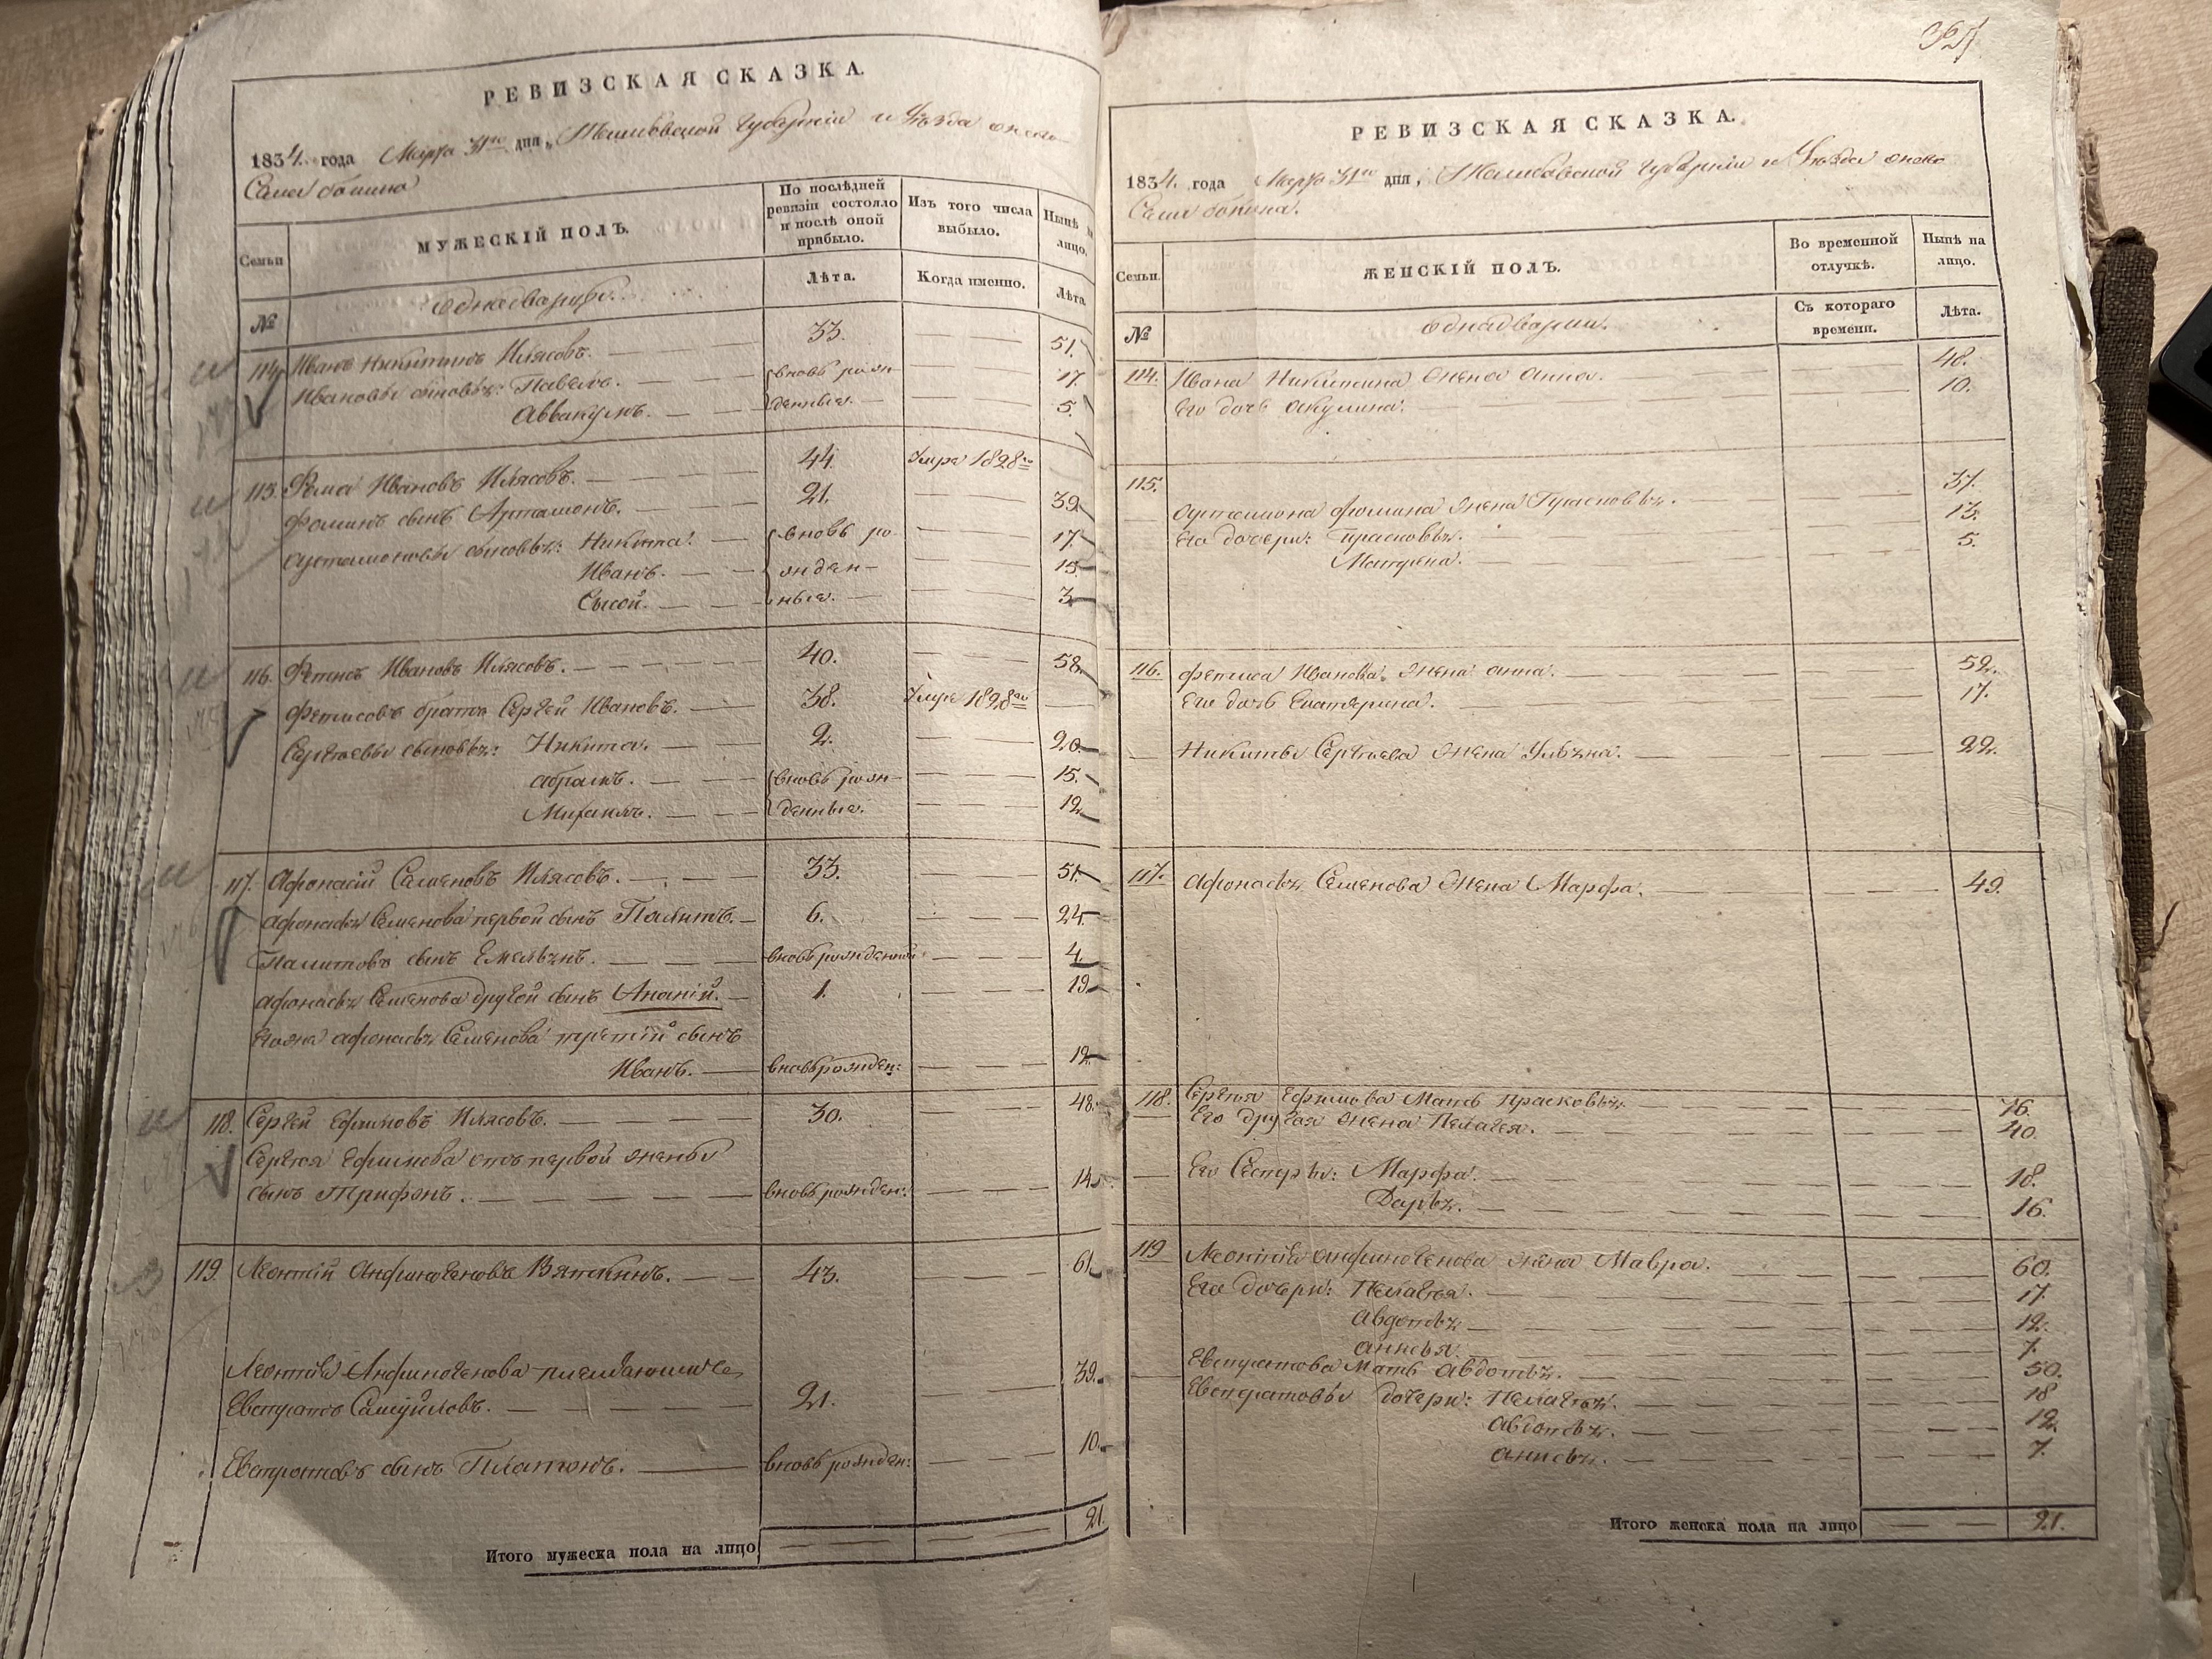 РЕВИЗСКАЯ СКАЗКА.
1834. года Марта 31го дня, Тамбовской Губернии и Уезда онаго
Села
Семьи
МУЖЕСКІЙ ПОЛЪ.
По послѣдней ревизіи состояло и послѣ оной прибыло.
Изъ того числа выбыло.
Нынѣ на лицо.
№
Однодворцы.
Лѣта.
Когда именно.
Лѣта
114. Иванъ Никитинъ Илясовъ. 33. 51.
Ивановы сыновья: Павелъ. вновь рож- 17.
Аввакумъ. денные. 5.
115. Фома Ивановъ Илясовъ. 44. Умре 1828го
Фоминъ сынъ Артамонъ. 21. 39
Артамоновы сыновья: Никита. вновь ро- 17.
Иванъ. жден- 15
Сысой. ные. 3.
116. Фетисъ Ивановъ Илясовъ. 40. 58.
Фетисовъ братъ Сергей Ивановъ. 38. Умре 1828го
Сергеевы сыновья: Никита. 2. 20
Абрамъ. вновь рож- 15.
Михаилъ. денные. 12
117. Афонасій Семеновъ Илясовъ. 33. 51.
Афонасья Семенова первой сынъ Палитъ. 6. 24
Палитовъ сынъ Емельянъ. вновь рожденной 4.
Афонасья Семенова другой сынъ Ананій. 1. 19
Егожа Афонасья Семенова третій сынъ
Иванъ. вновь рожден: 12
118. Сергей Ефимовъ Илясовъ. 30. 48.
Сергея Ефимова отъ первой жены
сынъ Трифонъ. вновь рожден: 14
119. Леонтій Анфиногеновъ Вяткинъ. 43. 61.
Леонтія Анфиногенова
Евстратъ Самуйловъ. 21. 39.
Евстратовъ сынъ Платонъ. вновь рожден: 10.
Итого мужеска пола на лицо 21.
РЕВИЗСКАЯ СКАЗКА.
1834. года Марта 31го дня, Тамбовской Губернии и Уезда онаго
Села
Семьи.
ЖЕНСКІЙ ПОЛЪ.
Во временной отлучкѣ.
Нынѣ на лицо.
№
Однодворки.
Съ котораго времени.
Лѣта.
114. Ивана Никитина жена Анна. 48.
Его дочь Акулина. 10.
115.
Артамона Фомина жена Прасковья. 37.
Его дочери: Прасковья. 13.
Матрена. 5.
116. Фетиса Иванова жена Анна. 52.
Его дочь Екатерина. 17.
Никиты Сергеева жена Ульяна. 22.
117. Афонасья Семенова жена Марфа. 49.
118. Сергея Ефимова Мать Прасковья 76.
Его другая жена Пелагея. 40.
Его Сестры: Марфа. 18.
Дарья. 16.
119 Леонтія Анфиногенова жена Мавра. 60.
Его дочери: Пелагея. 17.
Авдотья 12.
Анисья. 7.
Евстратова Мать Авдотья. 50.
Евстратовы дочери: Пелагея. 18
Авдотья. 12.
Анисья. 7.
Итого женска пола на лицо 21.